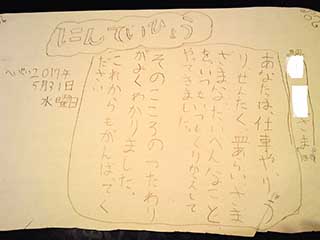 にんていしょう
さま
あなたは、仕事や、りょう
り、せんたく、皿あらい、さま
ざまな、たいへんなこと
を、いつもいつもくりかえして
やってきました。
そのこころのつたわり
がよくわかりました。
これからもがんばってく
ださい
へいせい2017年
5月31日
水曜日